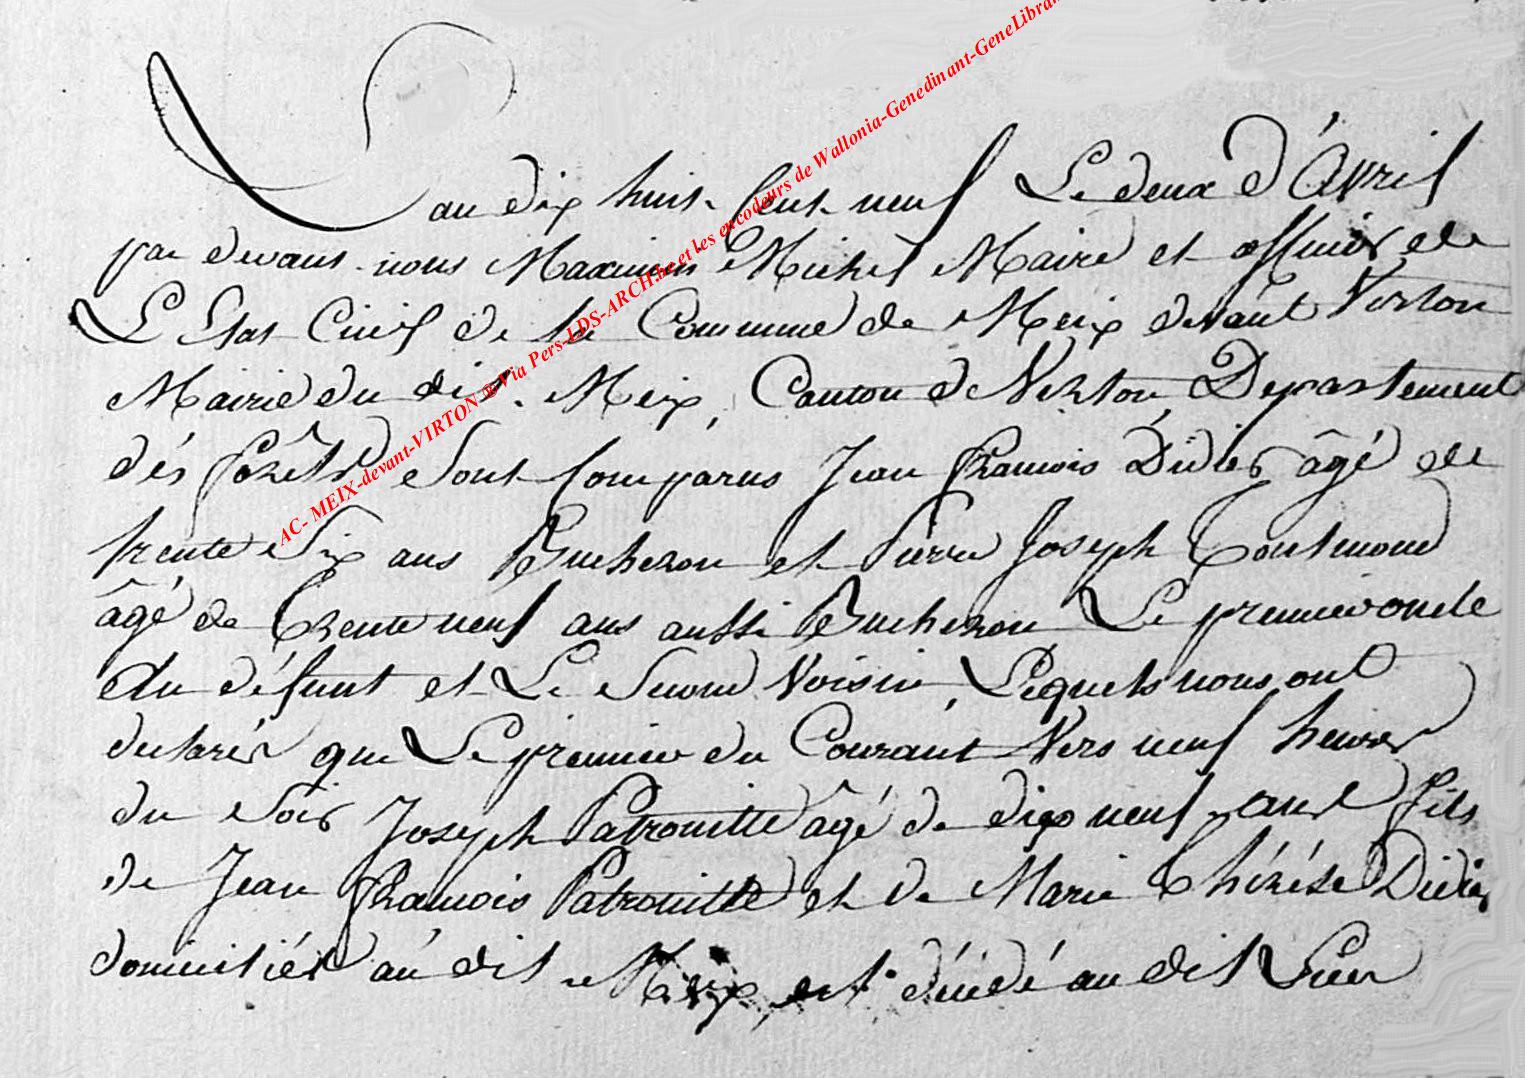 L'an dix huit Cent neuf Le deux d'Avril
par devant nous Maximin Michel Maire et officier de
L'Etat Civil de la Commune de Meix devant Virton
Mairie du dit Meix, Canton de Virton, Departement
dés Forêts Sont Comparus Jean François Didier âgé de
trente Six ans Bucheron et Pierre Joseph
âgé de Trente neuf ans aussi Bucheron Le premier oncle
du défunt et Le Second Voisin, Lequels nous ont
declarés que Le premier du Courant Vers neuf heures
du Soir Joseph Patrouille âgé de dix neuf ans fils
de Jean François Patrouille et de Marie Thérése Didier
domiciliés au dit Meix, est décédé au dit Lieu
AC- MEIX-devant-VIRTON @ Via Pers-LDS-ARCH.be et les encodeurs de Wallonia-Genedinant-GeneLibra